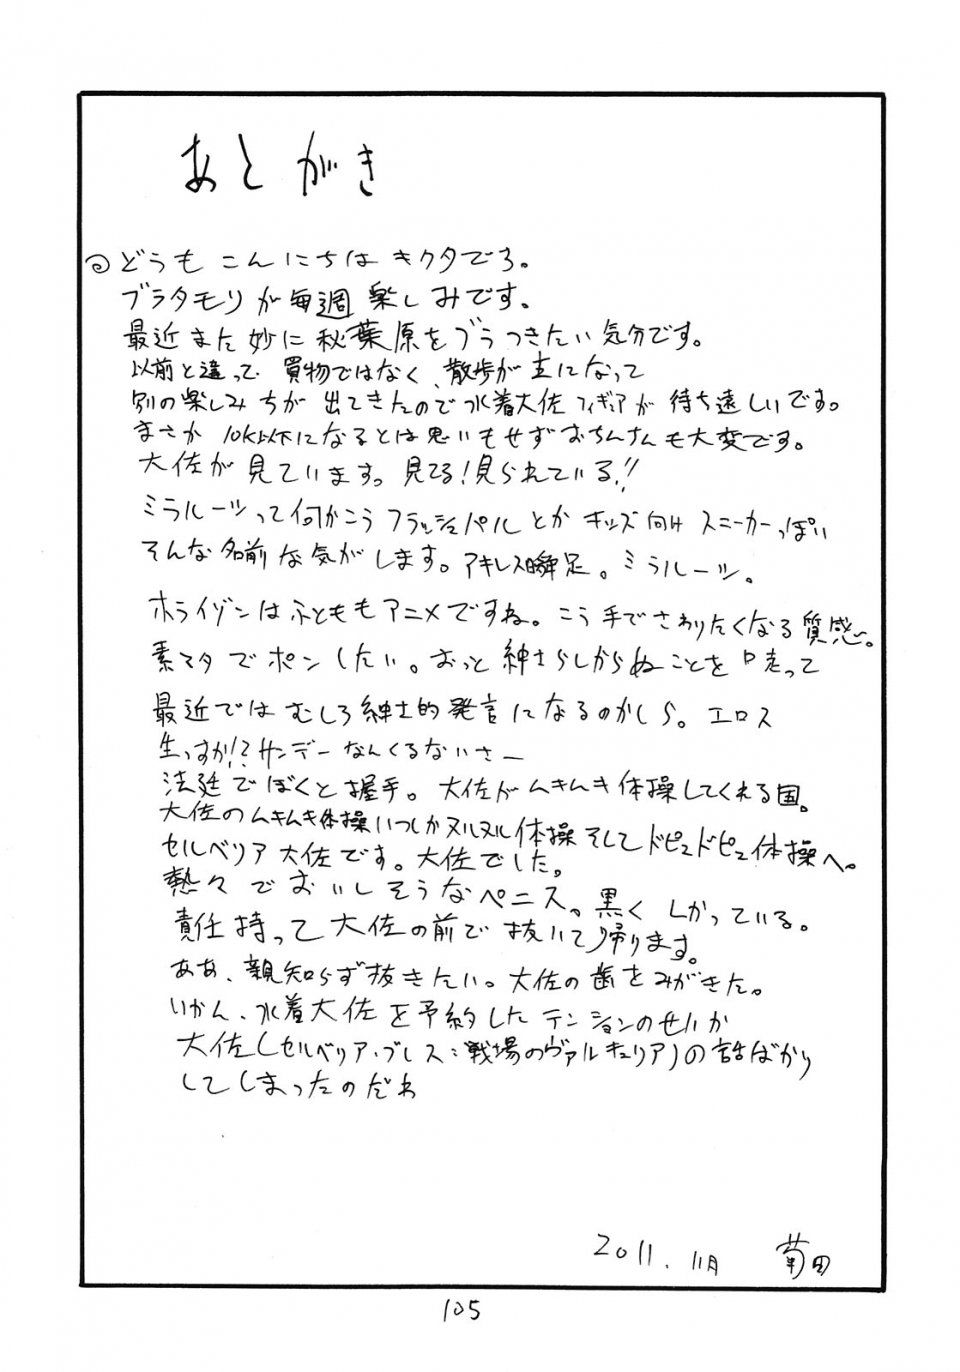 あとがき
どうもこんにちはキクタでろ。
ブラタモリが毎週楽しみです。
最近また妙に秋葉原をブラつきたい気分です。
以前と違って買物ではなく、散歩が主になって
別の楽しみちが出てきたので水着大佐フィギュアが待ち遠しいです。
まさか10K以下になるとは思いもせずおちんさんも大変です。
大佐が見ています。見てる!見られている!!
ミラルーツって何かこうフラッシュパルとかキッズ向けスニーカーっぽい
そんな名前な気がします。アキレス瞬足。ミラルーツ。
ホライゾンはふとももアニメですね。こう手でさわりたくなる質感。
素マタでポンしたい。おっと紳士らしからぬことを口走って
最近ではむしろ紳士的発言になるのかしら。エロス
生っすか!?サンデーなんくるないさー
法廷でぼくと握手。大佐がムキムキ体操してくれる国。
大佐のムキムキ体操いつしかヌルヌル体操そしてドピュドピュ体操へ。
セルベリア大佐です。大佐でした。
熱々でおいしそうなペニス。黒くしかっている。
責任持って大佐の前で抜いて帰ります。
ああ、親知らず抜きたい。大佐の歯をみがきた。
いかん、水着大佐を予約したテンションのせいか
大佐(セルベリア・ブレス:戦場のヴァルキュリア)の話ばかり
してしまったのだわ
2011.11月 菊田
105